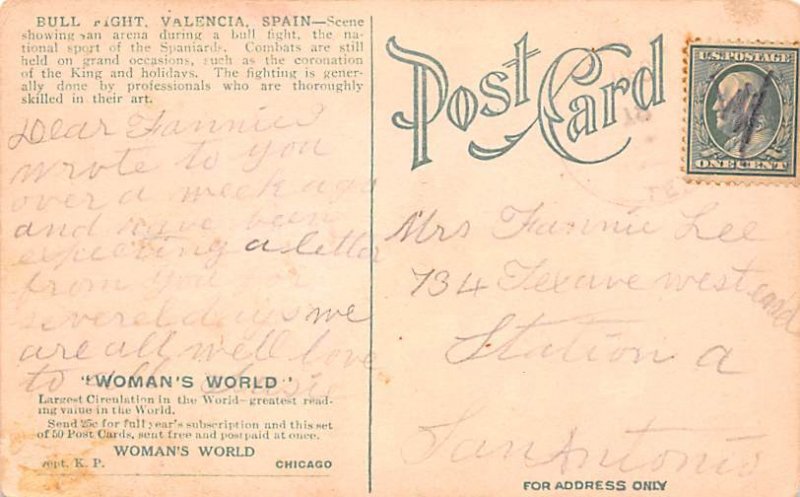 BULL FIGHT, VALENCIA, SPAIN—Scene
showing an arena during a bull fight, the na-
tional sport of the Spaniards. Combats are still
held on grand occasions, such as the coronation
of the King and holidays. The fighting is gener-
ally done by professionals who are thoroughly
skilled in their art.
Dear Fannie
wrote to you
over a week ago
and have been
expecting a letter
from you for
severel days we
are all well love
to all Susie
"WOMAN'S WORLD"
Largest Circulation in the World—greatest read-
ing value in the World.
Send 25c for full year's subscription and this set
of 50 Post Cards, sent free and postpaid at once.
WOMAN'S WORLD
Dept. K. P. CHICAGO
Post Card
U.S. POSTAGE
ONE CENT
Mrs Fannie Lee
734 Texave west end
Station a
San Antonio
FOR ADDRESS ONLY